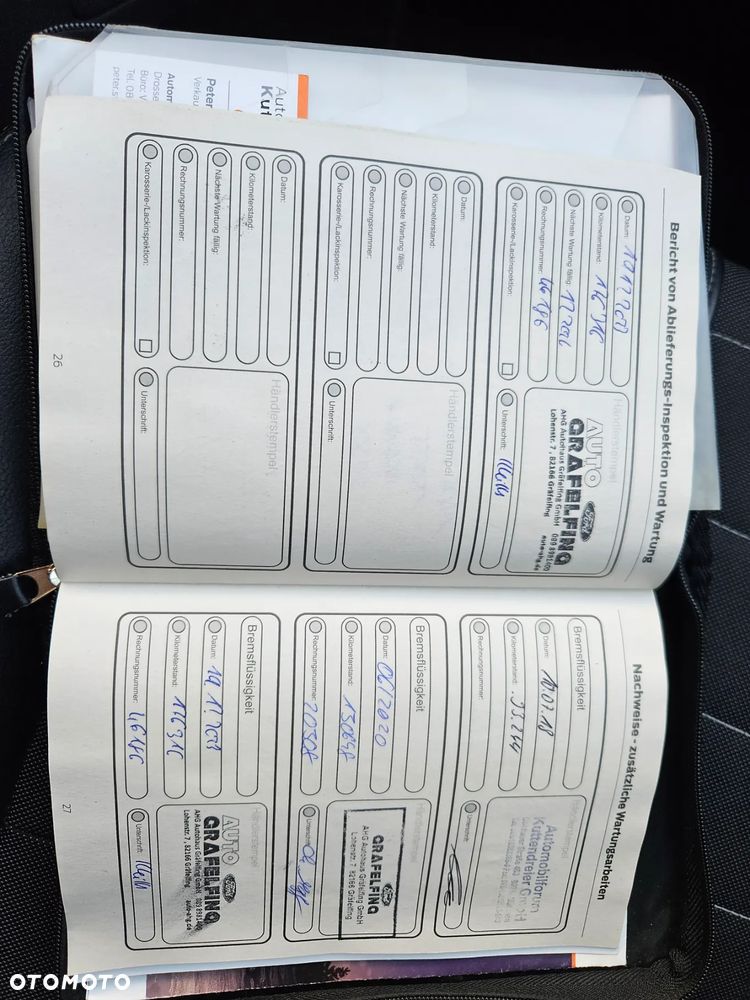 Auto
Kut
Peter
Verkau
Autom
Drosse
Büro: W
Tel. 08
peter.s
Bericht von Ablieferungs-Inspektion und Wartung
Datum:
Kilometerstand: 116 316
Nächste Wartung fällig:
Rechnungsnummer: 46186
Karosserie-/Lackinspektion:
Händlerstempel
AUTO Ford
GRÄFELFING
AHG Autohaus Gräfelfing GmbH 089 8981400
Lohenstr. 7, 82166 Gräfelfing auto-ahg.de
Unterschrift:
Datum:
Kilometerstand:
Nächste Wartung fällig:
Rechnungsnummer:
Karosserie-/Lackinspektion:
Händlerstempel
Unterschrift:
Datum:
Kilometerstand:
Nächste Wartung fällig:
Rechnungsnummer:
Karosserie-/Lackinspektion:
Händlerstempel
Unterschrift:
26
Nachweise - zusätzliche Wartungsarbeiten
Bremsflüssigkeit
Datum: 10.07.18
Kilometerstand: 93.244
Rechnungsnummer:
Händlerstempel
Automobilforum
Kuttendreier GmbH
Unterschrift:
Bremsflüssigkeit
Datum: 06/2020
Kilometerstand: 130648
Rechnungsnummer: 20308
Händlerstempel
Ford
GRÄFELFING
AHG Autohaus Gräfelfing GmbH
Lohenstr. 7 82166 Gräfelfing
Unterschrift:
Bremsflüssigkeit
Datum:
Kilometerstand: 116 316
Rechnungsnummer: 46186
Händlerstempel
AUTO Ford
GRÄFELFING
AHG Autohaus Gräfelfing GmbH 089 8981400
Lohenstr. 7, 82166 Gräfelfing auto-ahg.de
Unterschrift:
27
OTOMOTO